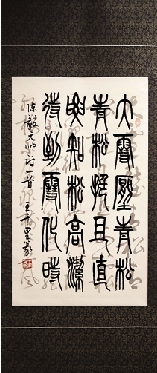 大雪壓青松
青松挺且直
要知松高潔
待到雪化時
陳毅元帥詩一首